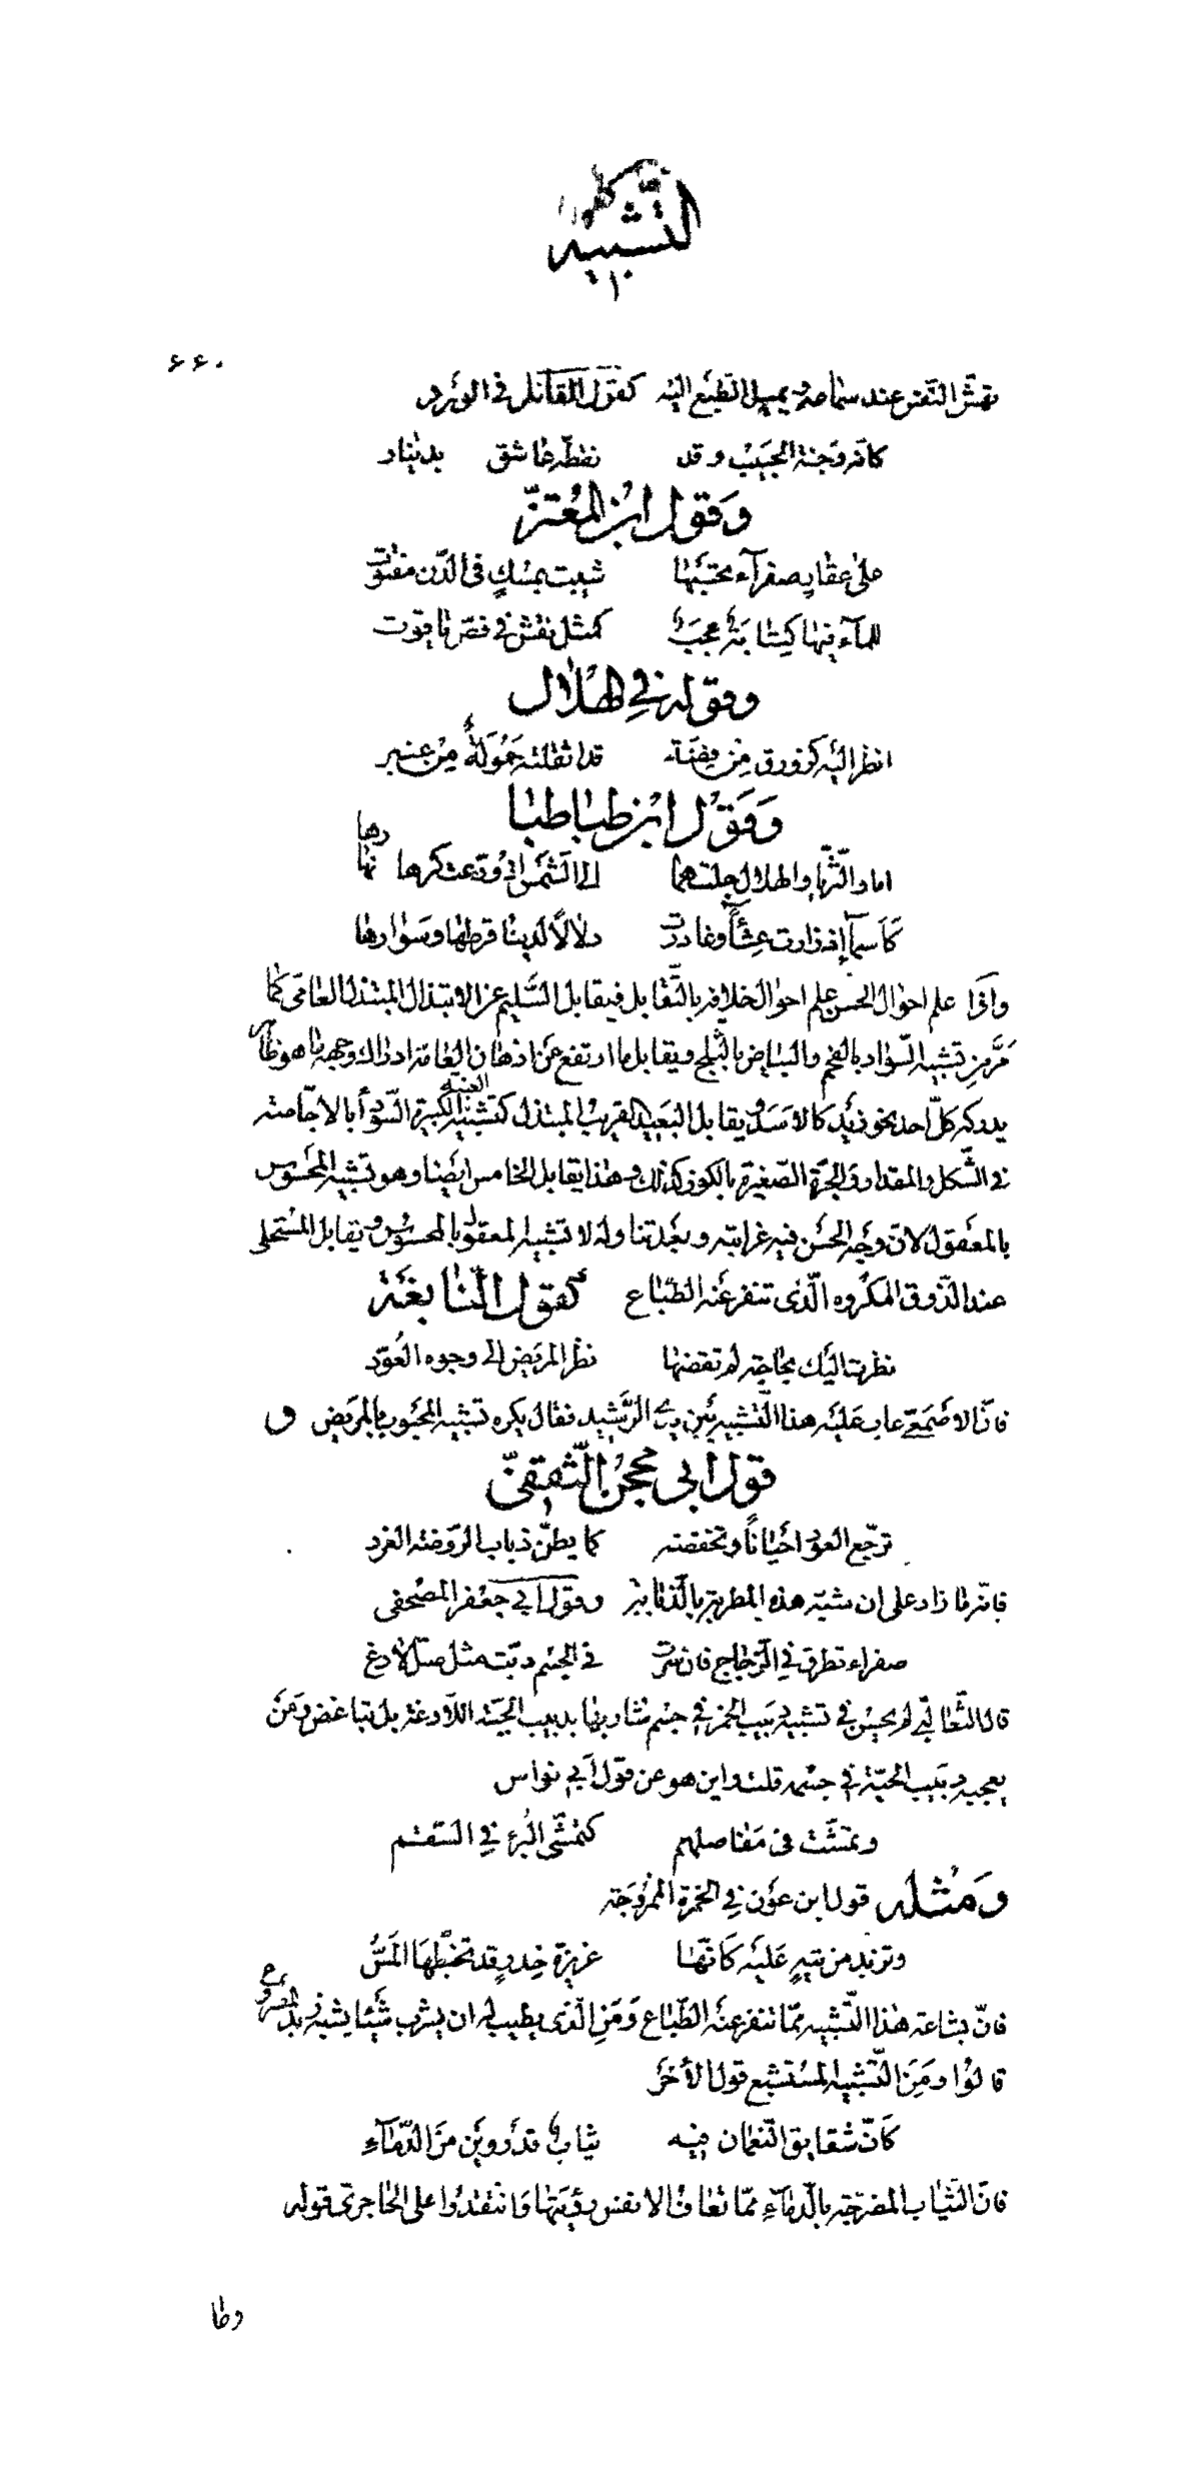 التشبيه
٦٦٠
تهش النفس عند سماعه ويميل الطبع اليه كقول القائل في الورد
كانه وجنة الحبيب وقد نقطه عاشق بدينار
وَقول ابن المُعتزّ
على عقار صفرآء تحسَبُها شيبت بمسكٍ في الدّن مفتوت
للمآء فيها كتابة عجب كمثل نقش في فصّ ياقوت
وقوله في الهلال
انظر اليه كزورق من فضة قد اثقلته حَمُولَةٌ مِن عنبر
وَقَول ابن طباطبا
اما والثريا والهلال جلتهما لى الشمس اذ ودعت كرها نهارها
كأسمآ إذ زارت عشاً وغادرت دلالاً لدينا قرطها وسوارها
واذا علم احوال الحسن علم احوال خلافه بالتّقابل فيقابل السّليم عن الابتذال المبتذل العامّي كما
مَرَّ من تشبيه السّواد بالفحم والبياض بالثلج ويقابل ما ارتفع عن اذهان العامّة ادراك وجهه ما هو ظاهر
يدركه كلّ احد نحو زيد كالاسد ويقابل البعيد القريب المبتذل كتشبيه العنبة الكبيرة السّودآ بالاجّاصة
في الشّكل والمقدار والجرّة الصّغيرة بالكوز كذلك وهذا يقابل الخامس ايضا وهو تشبيه المحسوس
بالمعقول لانّ وجه الحسن فيه غرابته وبعد تناوله لا تشبيه المعقول بالمحسوس ويقابل المستحلى
عند الذّوق المكروه الّذى تنفر عنه الطّباع كقول النّابغَة
نظرت اليك بحاجة لم تقضها نظر المريض الى وجوه العُوّد
فانّ الاصمعيّ عاب عليه هذا التّشبيه بَين يدي الرّشيد فقال يكره تشبيه المحبوب بالمريض و
قول ابى محجن الثّقفيّ
ترجّع العود احيَاناً وتخفضه كما يطنّ ذباب الرّوضة الغرد
فانّه ما زاد على ان شبّه هذه المطربة بالذّبابة وقول ابي جعفر المصحفى
صفراء تطرق في الزّجاج فان سرت في الجسم دبّت مثل صلّ لادغ
قال الثّعالبّي لم يحسِن في تشبيه دبيب الخمر في جسم شاربها بدبيب الحيّة اللآدغة بل تباغض ومَن
يعجبه دبيب الحيّة في جسمه قلت واين هو عن قول ابي نواس
وتمشّت فى مفاصلهم كتمشّى البُرء في السّقم
وَمثله قول ابن عون في الخمرة الممزوجة
وتزبد من تيهٍ عليه كَانّها عزيزة خِدرٍ قد تخبّطها المَسُّ
فانّ بشاعة هٰذا التّشبيه ممّا تنفر عنه الطّباع وَمَنِ الّذى يطيب له ان يشرب شَيئا يشبه زبد المصروع
قالوا ومن التّشبيه المستشبع قول الاخر
كَانّ شقايق النّعمان فيه ثياب قد روين من الدّمآءِ
فانّ الثّياب المضرّجة بالدّمآءِ ممّا تعاف الانفس رؤيتها وانتقدوا على الحاجرىّ قوله
وما